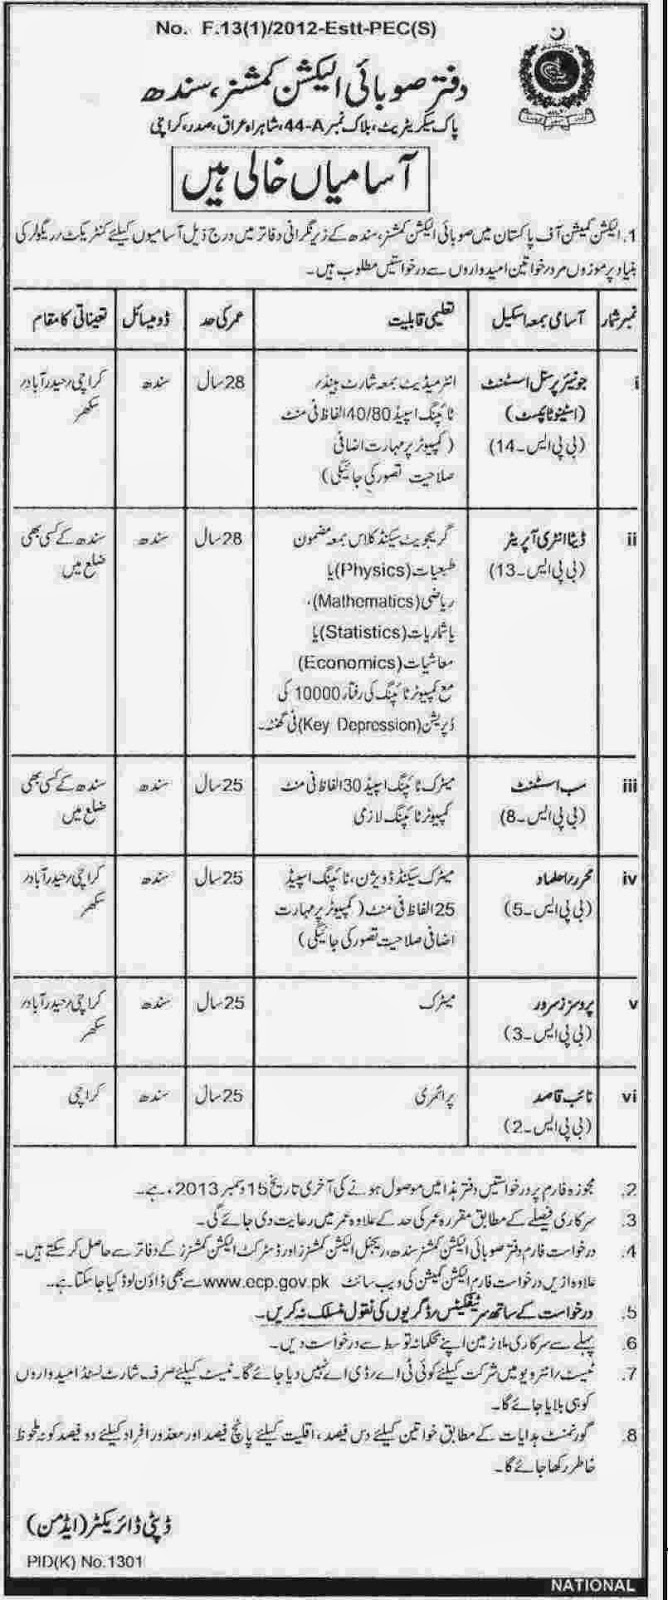 No. F.13(1)/2012-Estt-PEC(S)
دفتر صوبائی الیکشن کمشنر، سندھ
پاک سیکریٹریٹ، بلاک نمبر 44-A، شاہراہ عراق، صدر، کراچی
آسامیاں خالی ہیں
1. الیکشن کمیشن آف پاکستان میں صوبائی الیکشن کمشنر، سندھ کے زیر نگرانی دفاتر میں درج ذیل آسامیوں کیلئے کنٹریکٹ/ریگولر کی
بنیاد پر موزوں مرد/خواتین امیدواروں سے درخواستیں مطلوب ہیں۔
نمبر شمار آسامی بمعہ اسکیل تعلیمی قابلیت عمر کی حد ڈومیسائل تعیناتی کا مقام
i جونیئر پرسنل اسسٹنٹ انٹرمیڈیٹ بمعہ شارٹ ہینڈ/ 28 سال سندھ کراچی/حیدرآباد/
(اسٹینو ٹائپسٹ) ٹائپنگ اسپیڈ 40/80 الفاظ فی منٹ سکھر
(بی پی ایس۔14) (کمپیوٹر پر مہارت اضافی
صلاحیت تصور کی جائیگی)
ii ڈیٹا انٹری آپریٹر گریجویٹ سیکنڈ کلاس بمعہ مضمون 28 سال سندھ سندھ کے کسی بھی
(بی پی ایس۔13) طبعیات (Physics) یا ضلع میں
ریاضی (Mathematics)،
یا شماریات (Statistics) یا
معاشیات (Economics)
مع کمپیوٹر ٹائپنگ کی رفتار 10000 کی
ڈپریشن (Key Depression) فی گھنٹہ۔
iii سب اسسٹنٹ میٹرک ٹائپنگ اسپیڈ 30 الفاظ فی منٹ 25 سال سندھ سندھ کے کسی بھی
(بی پی ایس۔8) کمپیوٹر ٹائپنگ لازمی ضلع میں
iv محرر/اہلمد میٹرک سیکنڈ ڈویژن، ٹائپنگ اسپیڈ 25 سال سندھ کراچی/حیدرآباد/
(بی پی ایس۔5) 25 الفاظ فی منٹ (کمپیوٹر پر مہارت سکھر
اضافی صلاحیت تصور کی جائیگی)
v پروسز سرور میٹرک 25 سال سندھ کراچی/حیدرآباد/
(بی پی ایس۔3) سکھر
vi نائب قاصد پرائمری 25 سال سندھ کراچی
(بی پی ایس۔2)
2. مجوزہ فارم پر درخواستیں دفتر ہذا میں موصول ہونے کی آخری تاریخ 15 دسمبر 2013ء ہے۔
3. سرکاری فیصلے کے مطابق مقررہ عمر کی حد کے علاوہ عمر میں رعایت دی جائے گی۔
4. درخواست فارم دفتر صوبائی الیکشن کمشنر سندھ، ریجنل الیکشن کمشنرز اور ڈسٹرکٹ الیکشن کمشنرز کے دفاتر سے حاصل کر سکتے ہیں۔
علاوہ ازیں درخواست فارم الیکشن کمیشن کی ویب سائٹ www.ecp.gov.pk سے بھی ڈاؤن لوڈ کیا جا سکتا ہے۔
5. درخواست کے ساتھ سرٹیفکیٹس/ڈگریوں کی نقول منسلک نہ کریں۔
6. پہلے سے سرکاری ملازمین اپنے محکمانہ توسط سے درخواست دیں۔
7. ٹیسٹ/انٹرویو میں شرکت کیلئے کوئی ٹی اے/ڈی اے نہیں دیا جائے گا۔ ٹیسٹ کیلئے صرف شارٹ لسٹڈ امیدواروں
کو ہی بلایا جائے گا۔
8. گورنمنٹ ہدایات کے مطابق خواتین کیلئے دس فیصد، اقلیت کیلئے پانچ فیصد اور معذور افراد کیلئے دو فیصد کوٹہ ملحوظ
خاطر رکھا جائے گا۔
ڈپٹی ڈائریکٹر (ایڈمن)
PID(K) No.1301
NATIONAL